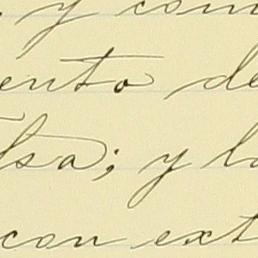 y com
ento de
lsa; y la
con ext